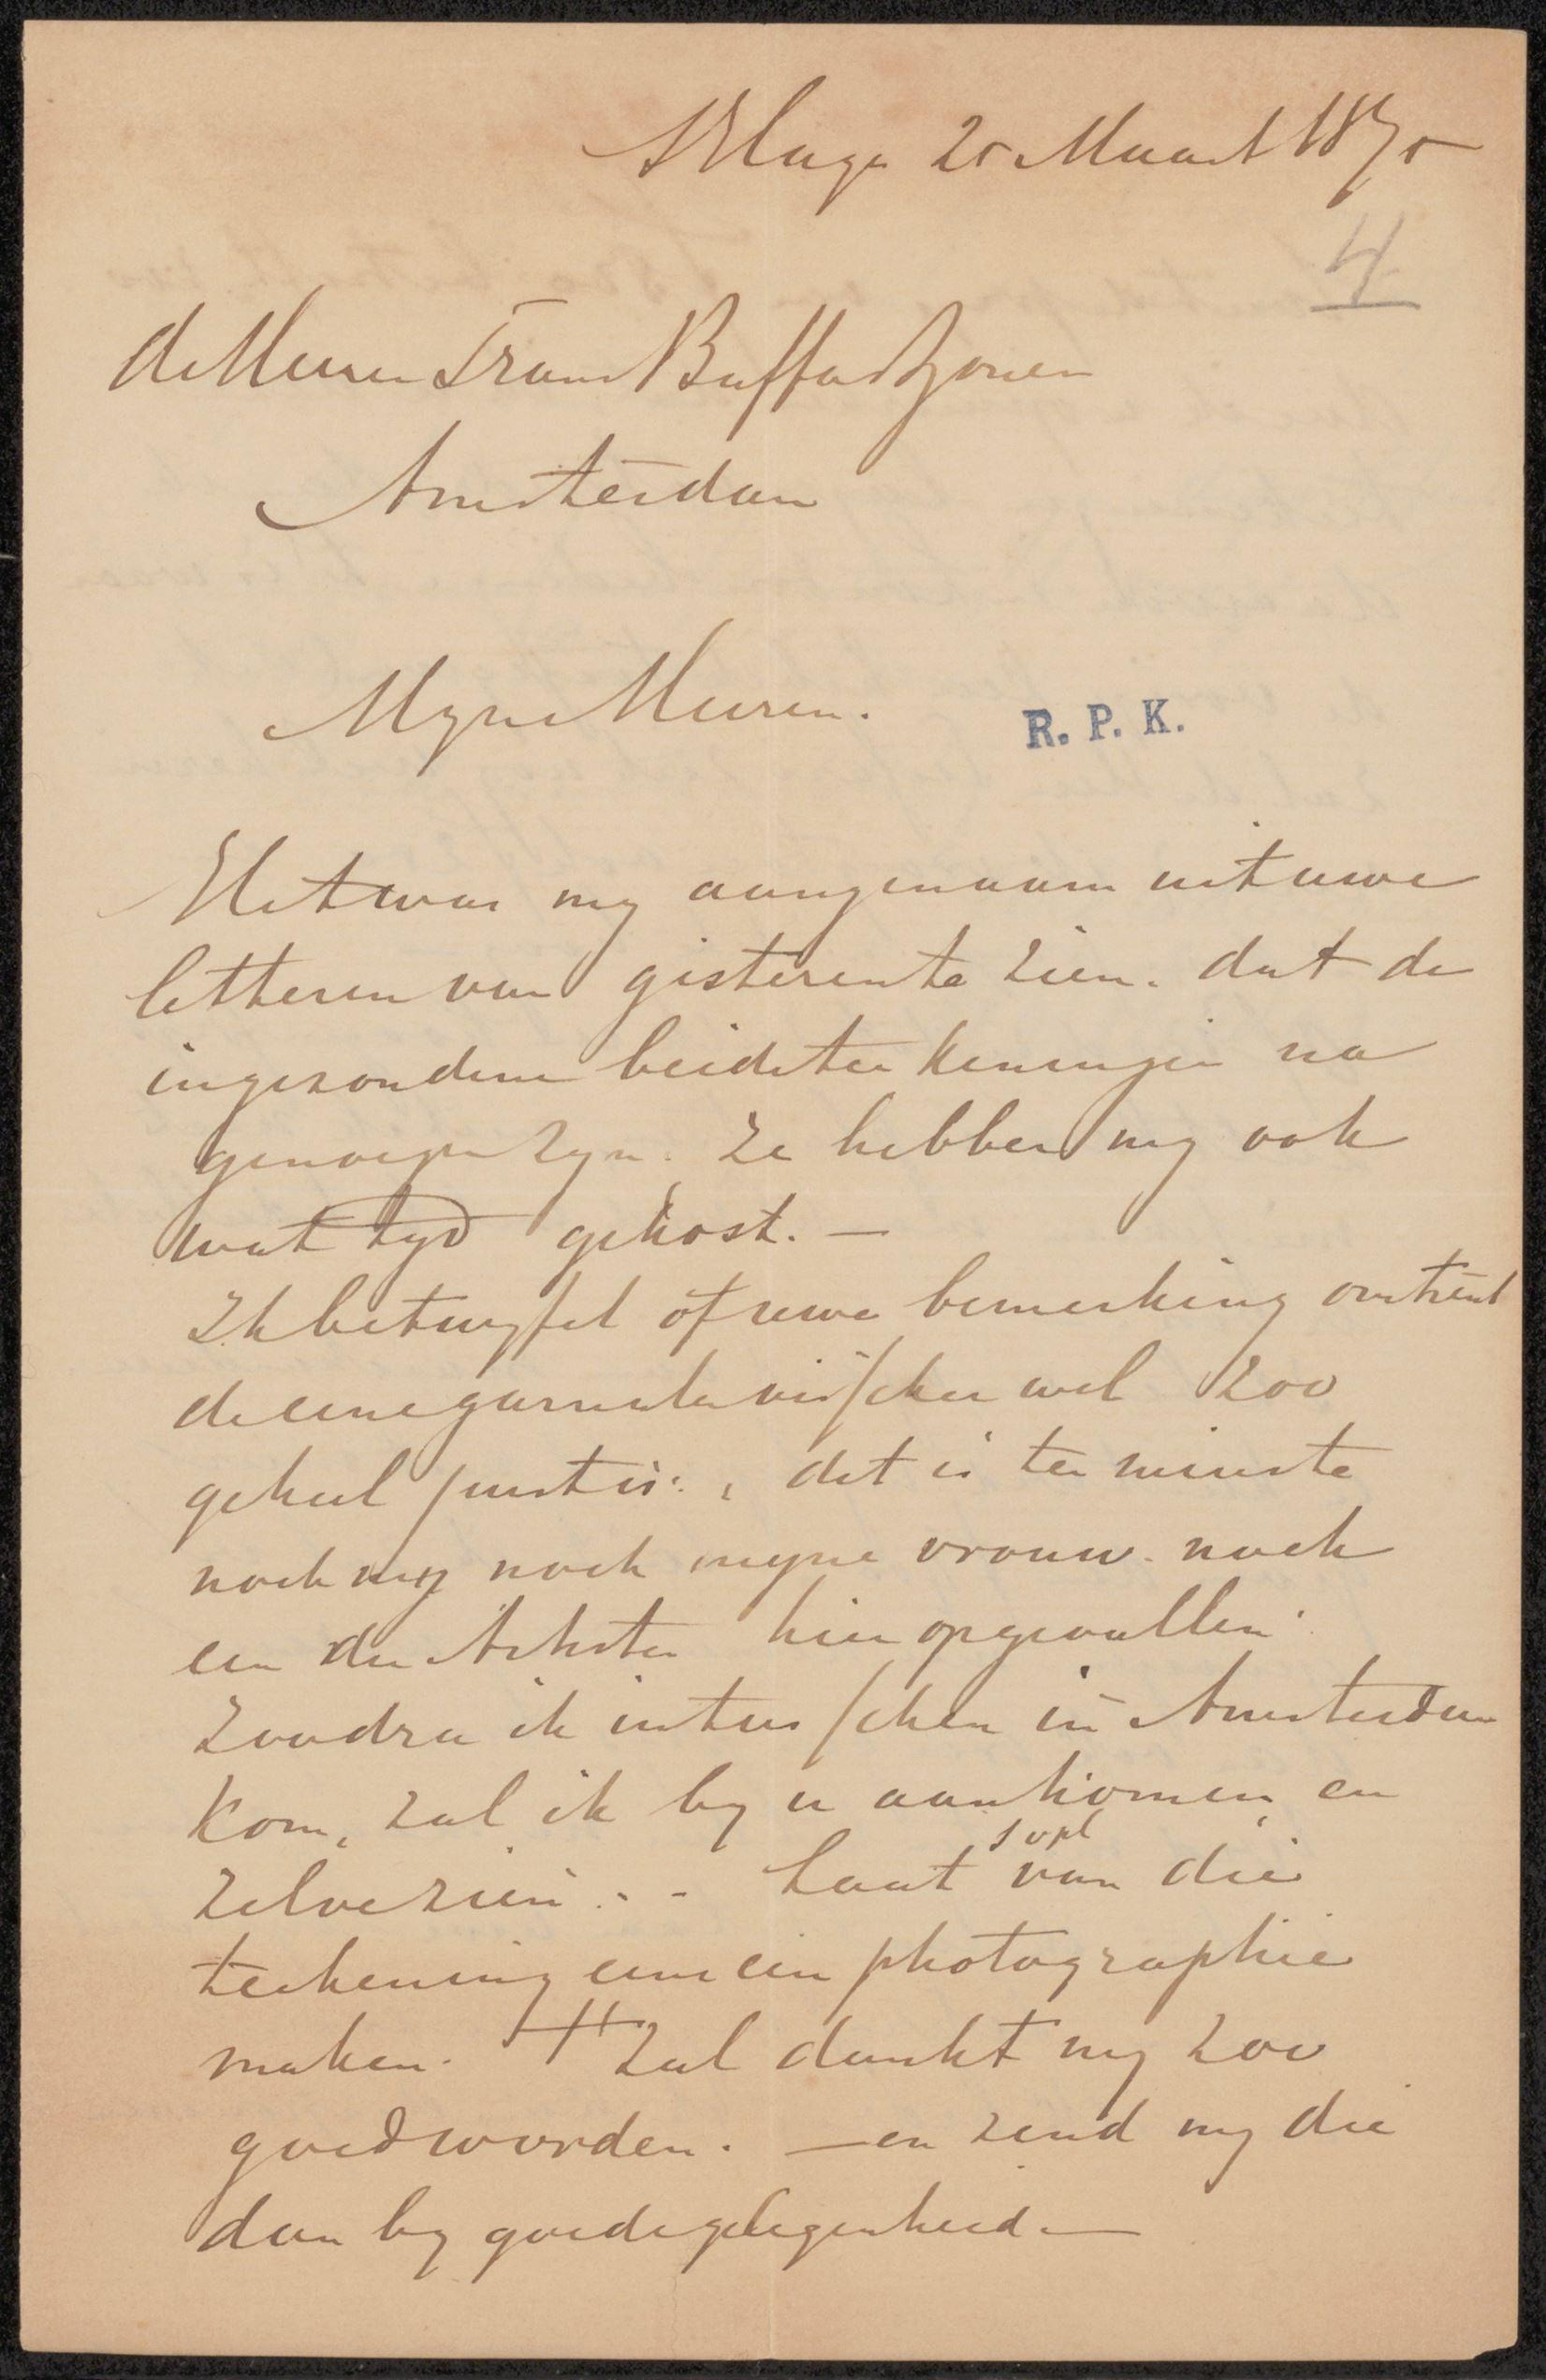 s'Hage 25 Maart 1875
4
de Heeren Frans Buffa & Zonen
Amsterdam
Myne Heeren.
R. P. K.
Het was my aangenaam uit uwe
letteren van gisteren te zien. dat de
ingezonden beide teekeningen na
genoegen zyn. Ze hebben my ook
wat tyd gekost. —
Ik betwyfel of uwe bemerking omtrent
de eene garnalen visscher wel zoo
geheel juist is: , dit is ten minste
noch my noch myne vrouw. noch
een der Artisten hier opgevallen.
Zoodra ik intusschen in Amsterdam
kom, zal ik by u aankomen, en
zelve zien. - Laat svpl van die
teekening eens een photographie
maken. 't Zal dunkt my zoo
goed worden. — en zend my die
dan by goede gelegenheid. —